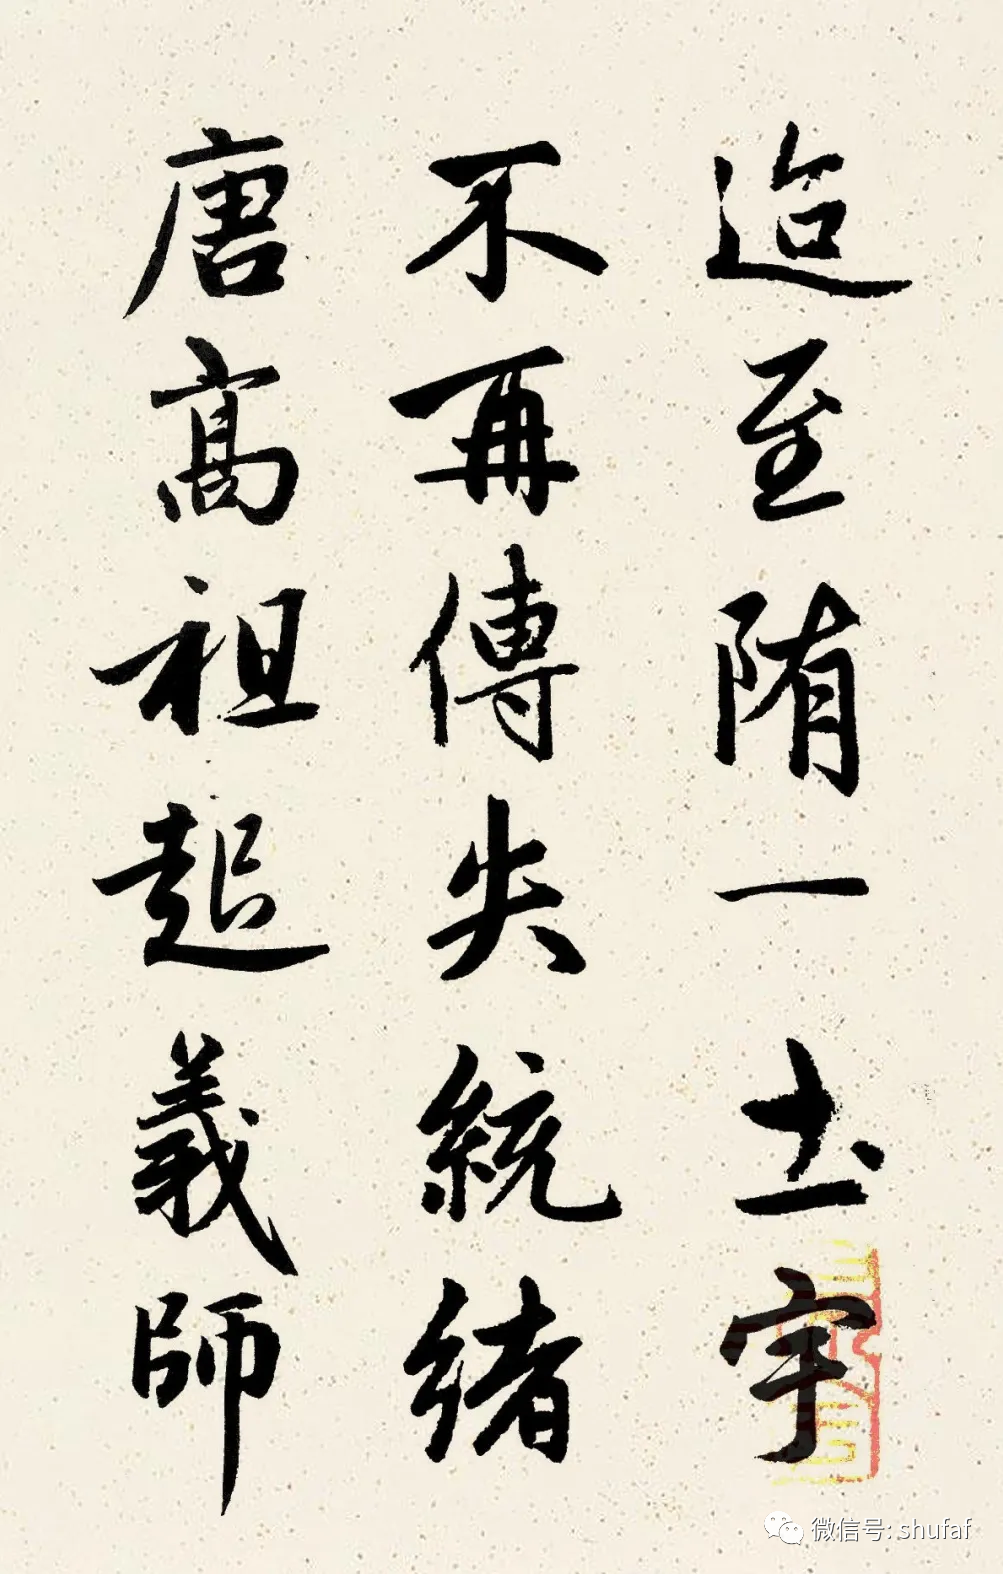 迨至隋一土宇
不再傳失統緒
唐高祖起義師
微信号: shufaf